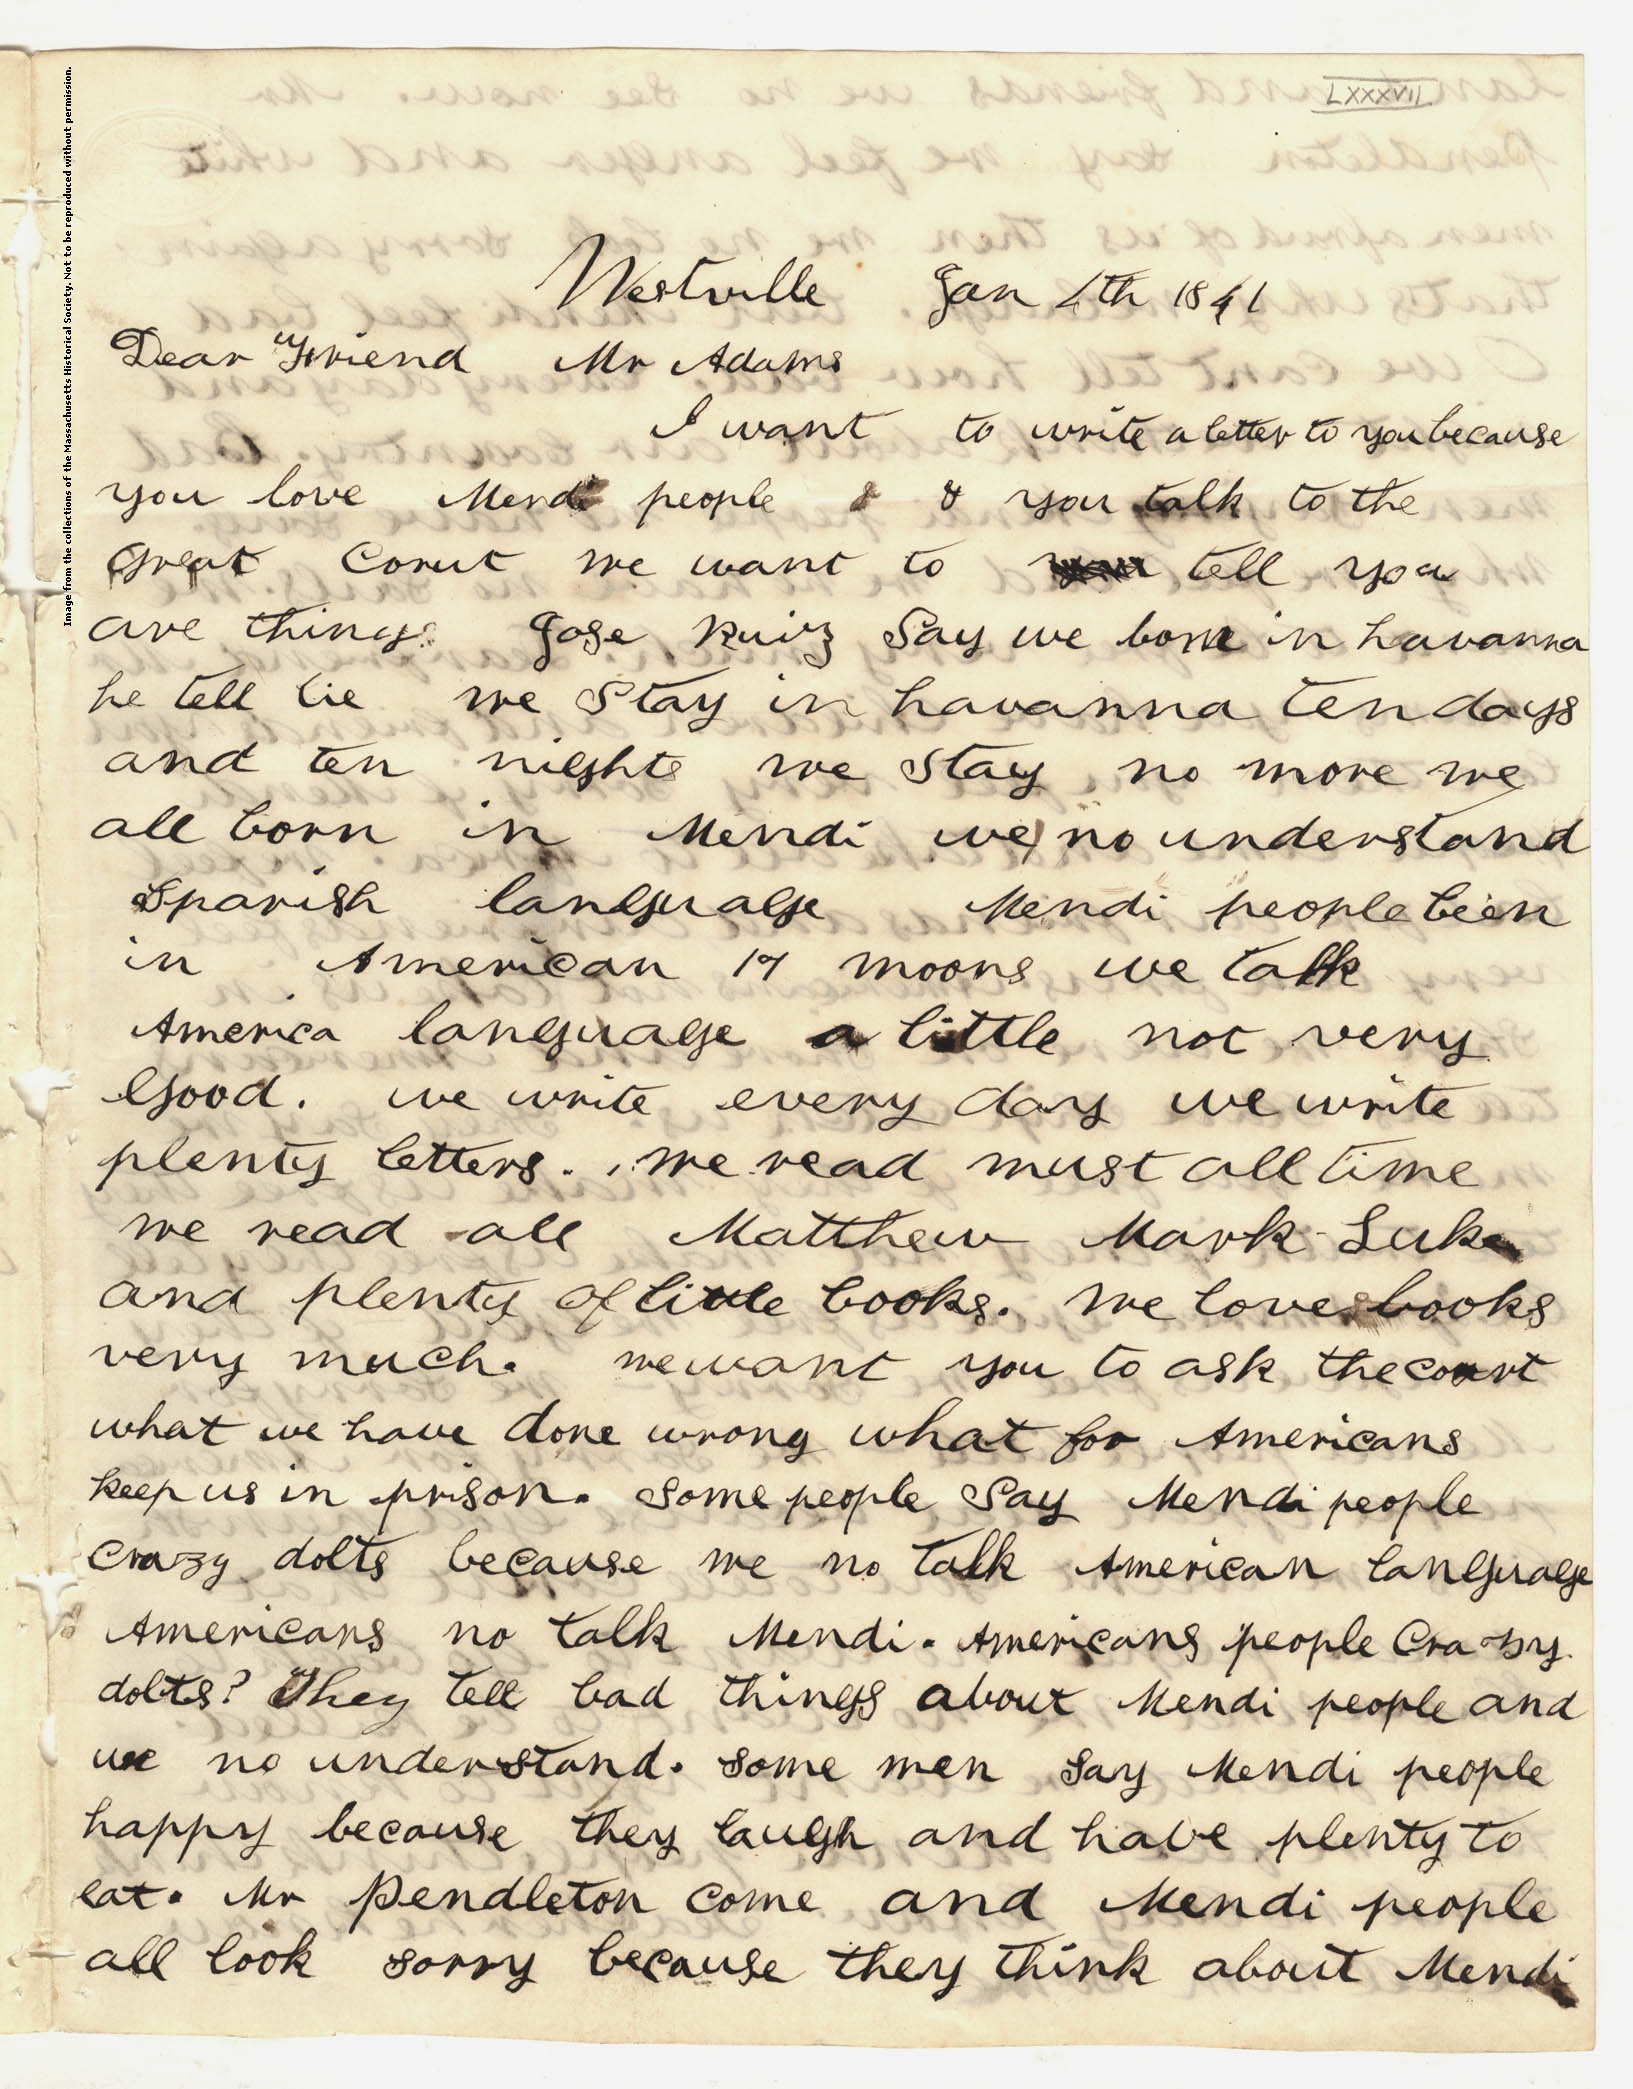 Image from the collections of the Massachusetts Historical Society. Not to be reproduced without permission.
LXXXVII
Westville Jan 4th 1841
Dear Friend Mr Adams
I want to write a letter to you because
you love Mendi people & & you talk to the
Great Corut we want to tell you
one things Jose Ruiz Say we born in havanna
he tell lie we Stay in havanna ten days
and ten nights we stay no more we
all born in Mendi we no understand
Spanish language Mendi people been
in American 17 moons we talk
America language a little not very
good. we write every day we write
plenty letters. we read must all time
we read all Matthew Mark Luke
and plenty of little books. we love books
very much. we want you to ask the court
what we have done wrong what for Americans
keep us in prison. Some people Say Mendi people
Crazy dolts because we no talk American language
Americans no talk Mendi. Americans people Crazy
dolts? They tell bad things about Mendi people and
we no understand. some men say Mendi people
happy because they laugh and have plenty to
eat. Mr Pendleton come and Mendi people
all look sorry because they think about Mendi